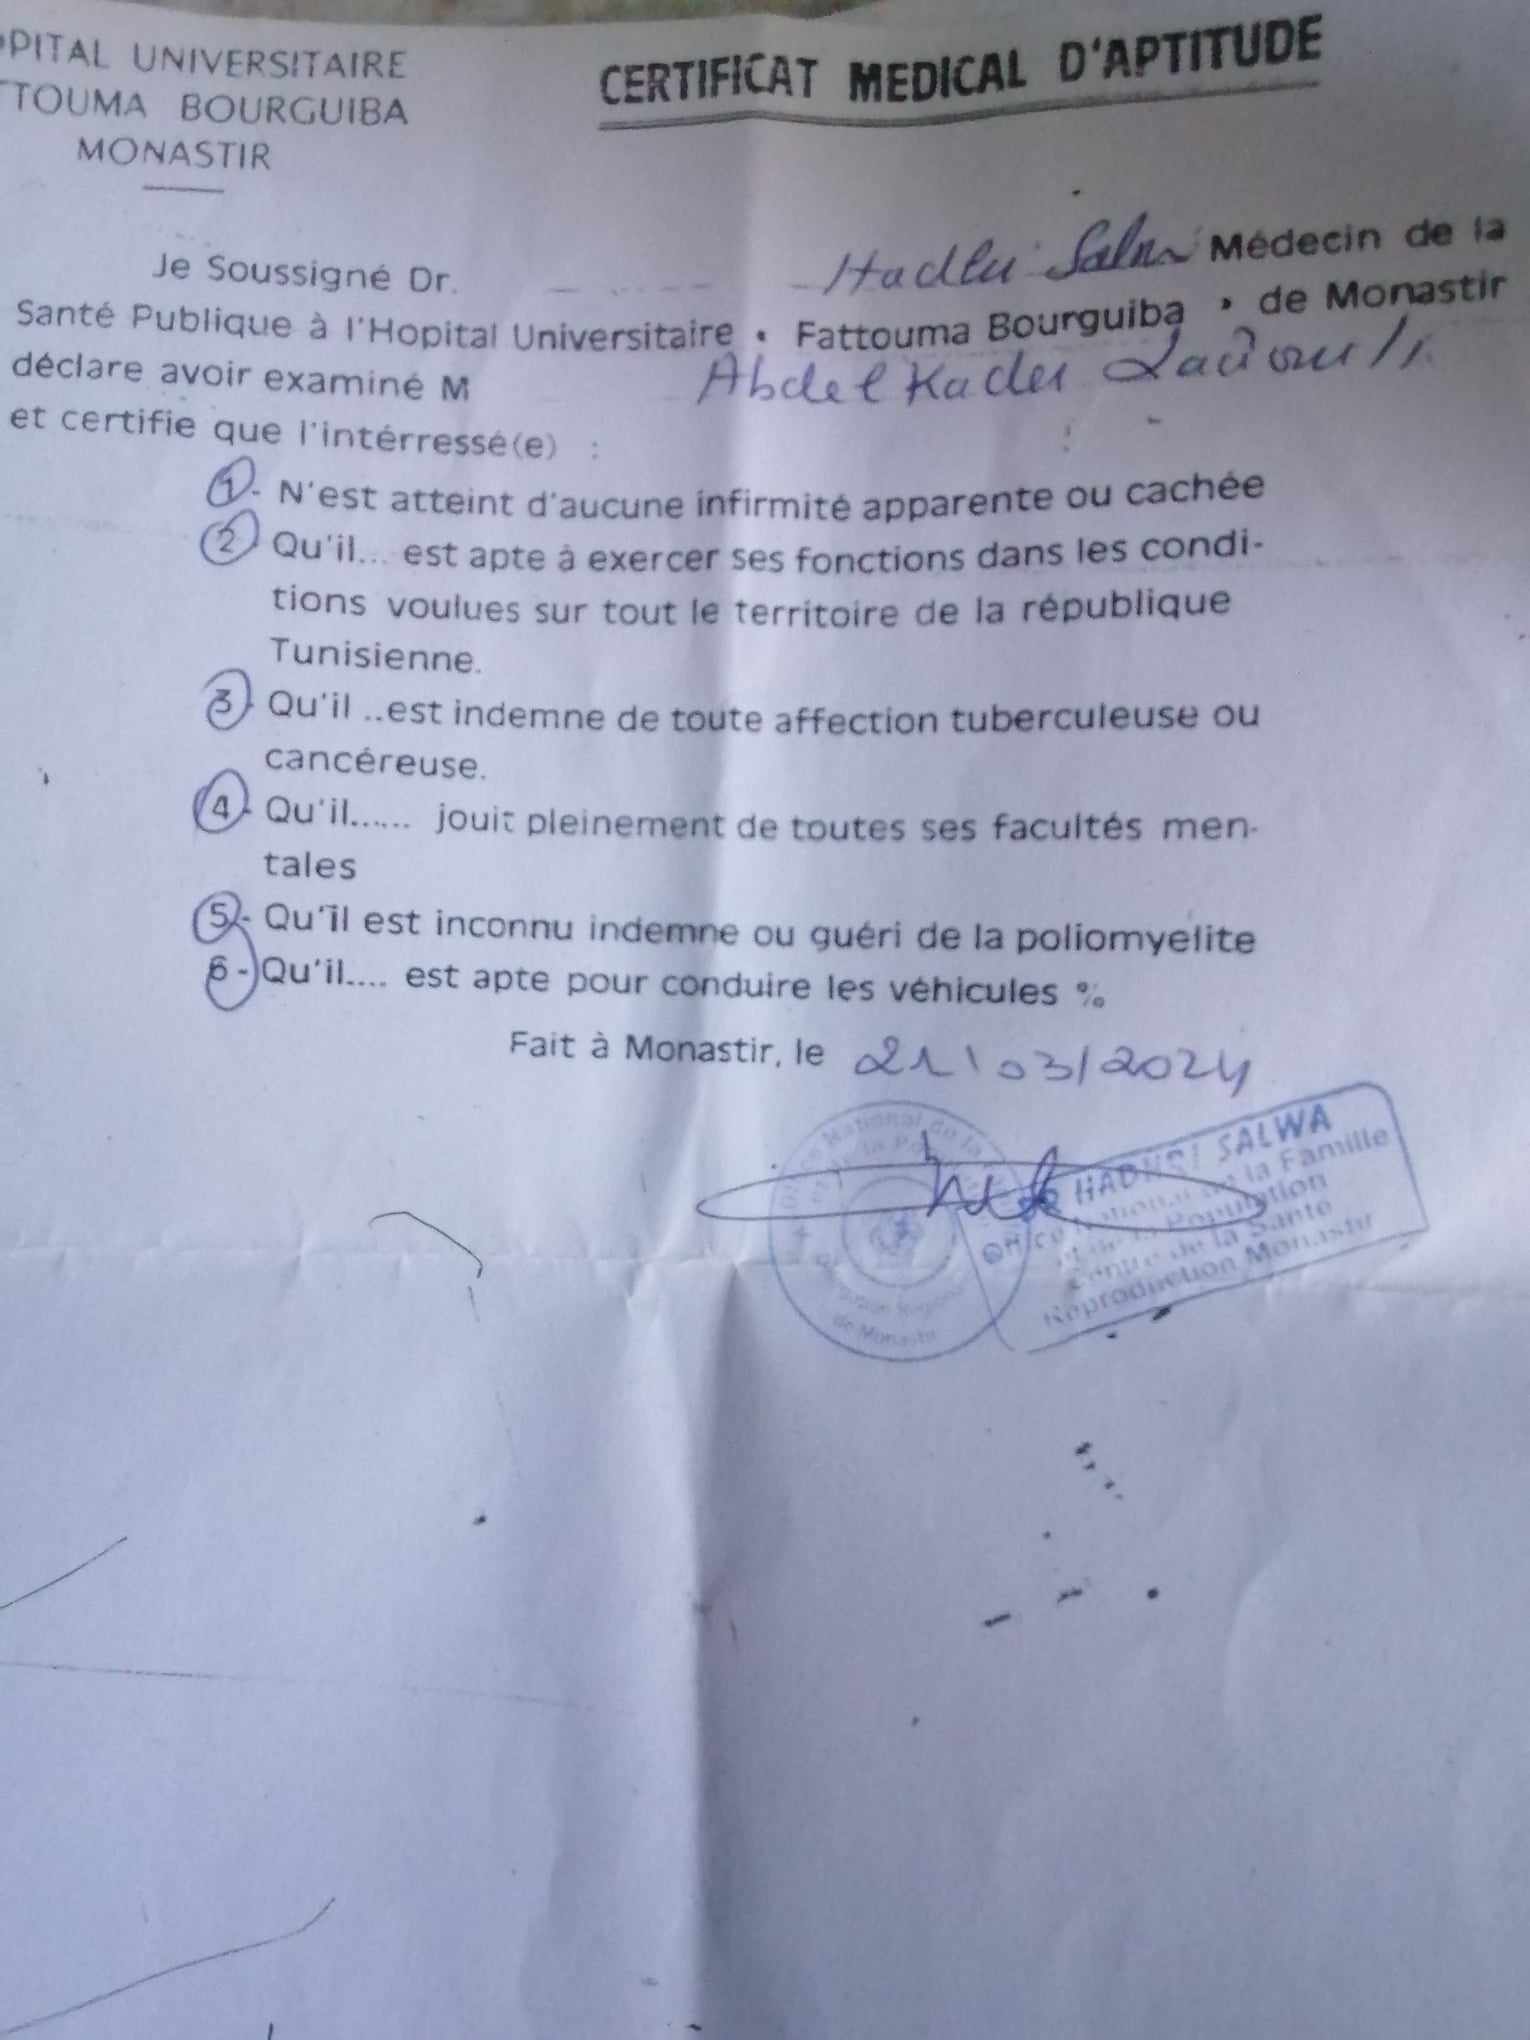 PITAL UNIVERSITAIRE
TOUMA BOURGUIBA
MONASTIR
CERTIFICAT MEDICAL D'APTITUDE
Je Soussigné Dr. Médecin de la
Santé Publique à l'Hopital Universitaire • Fattouma Bourguiba • de Monastir
déclare avoir examiné M Abdelkader
et certifie que l'intérressé(e) :
1- N'est atteint d'aucune infirmité apparente ou cachée
2 Qu'il... est apte à exercer ses fonctions dans les condi-
tions voulues sur tout le territoire de la république
Tunisienne.
3 Qu'il ..est indemne de toute affection tuberculeuse ou
cancéreuse.
4- Qu'il...... jouit pleinement de toutes ses facultés men-
tales
5- Qu'il est inconnu indemne ou guéri de la poliomyelite
6- Qu'il.... est apte pour conduire les véhicules %
Fait à Monastir, le 21/03/2024
National de la
de Monastir
SALWA
de la Famille
Population
de la Santé
Reproduction Monastir